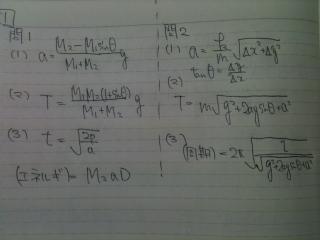 1
問1
(1) a = (M₂ - M₁sinθ)/(M₁+M₂) g
(2) T = M₁M₂(1+sinθ)/(M₁+M₂) g
(3) t = √(2D/a)
(エネルギー) = M₂aD
問2
(1) a = /m √(Δx²+Δy²)
tanθ = Δy/Δx
(2)
T = m√(g²+2agsinθ+a²)
(3)
= 2π √(l/√(g²+2agsinθ+a²))